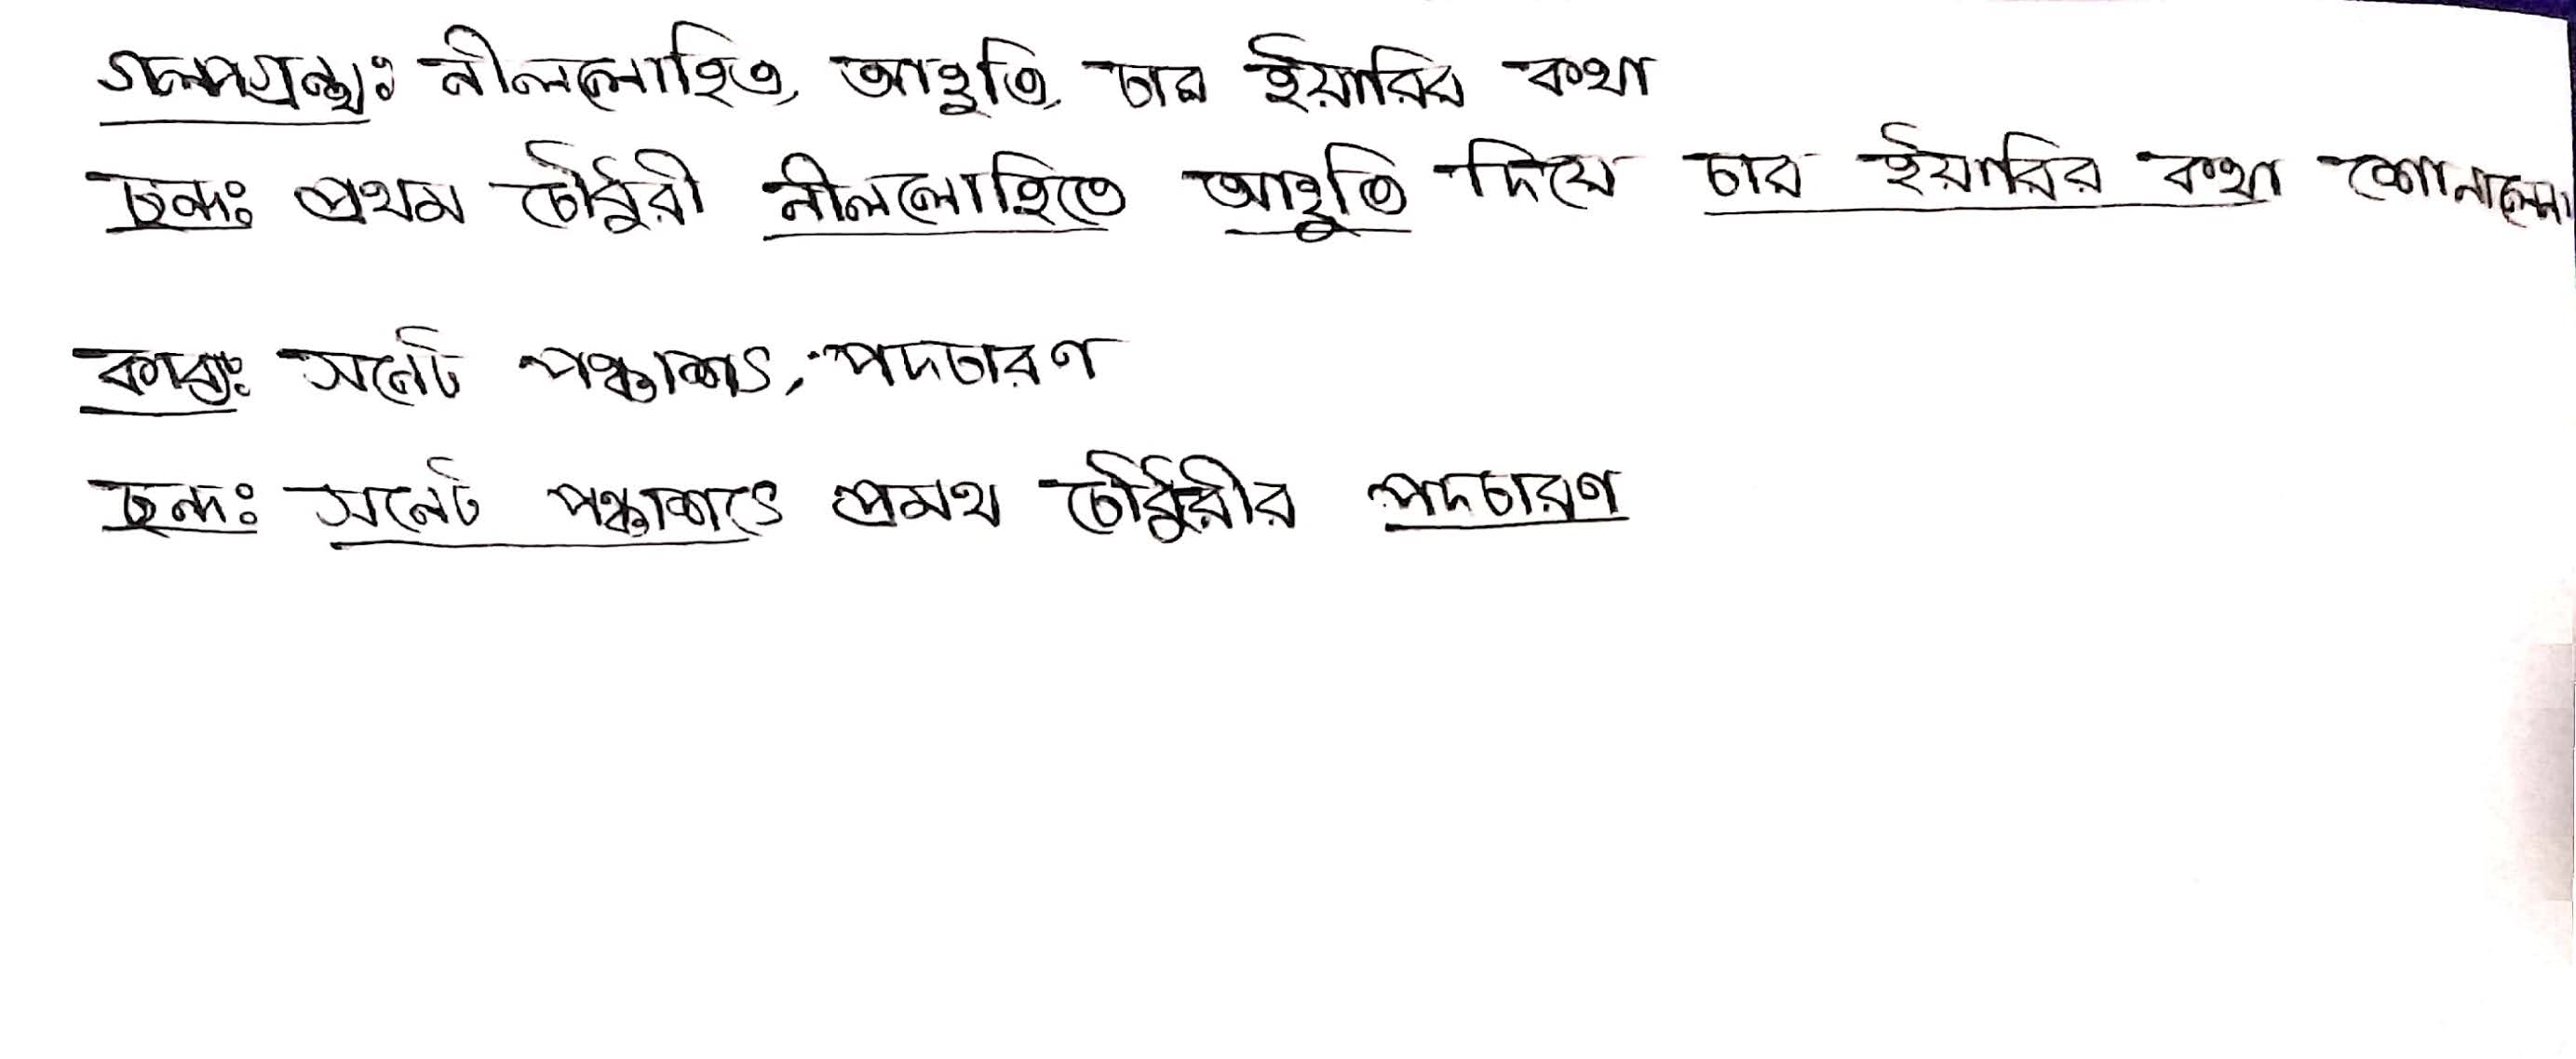 গল্পগ্রন্থঃ নীললোহিত, আহুতি, চার ইয়ারির কথা
ছন্দঃ প্রথম চৌধুরী নীললোহিতে আহুতি দিয়ে চার ইয়ারির কথা শোনালেন
কাব্যঃ সনেট পঞ্চাশৎ, পদচারণ
ছন্দঃ সনেট পঞ্চাশতে প্রমথ চৌধুরীর পদচারণ